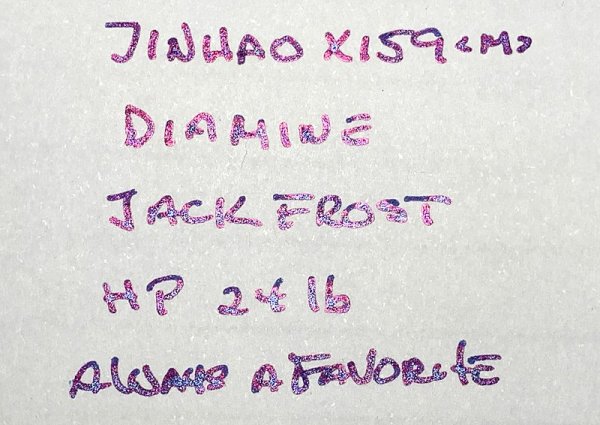 JINHAO X159 <M>
DIAMINE
JACK FROST
HP 24 lb
ALWAYS A FAVORITE